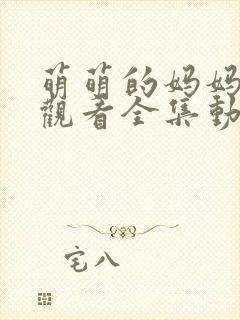 萌萌的妈妈
觀看全集動
宅八